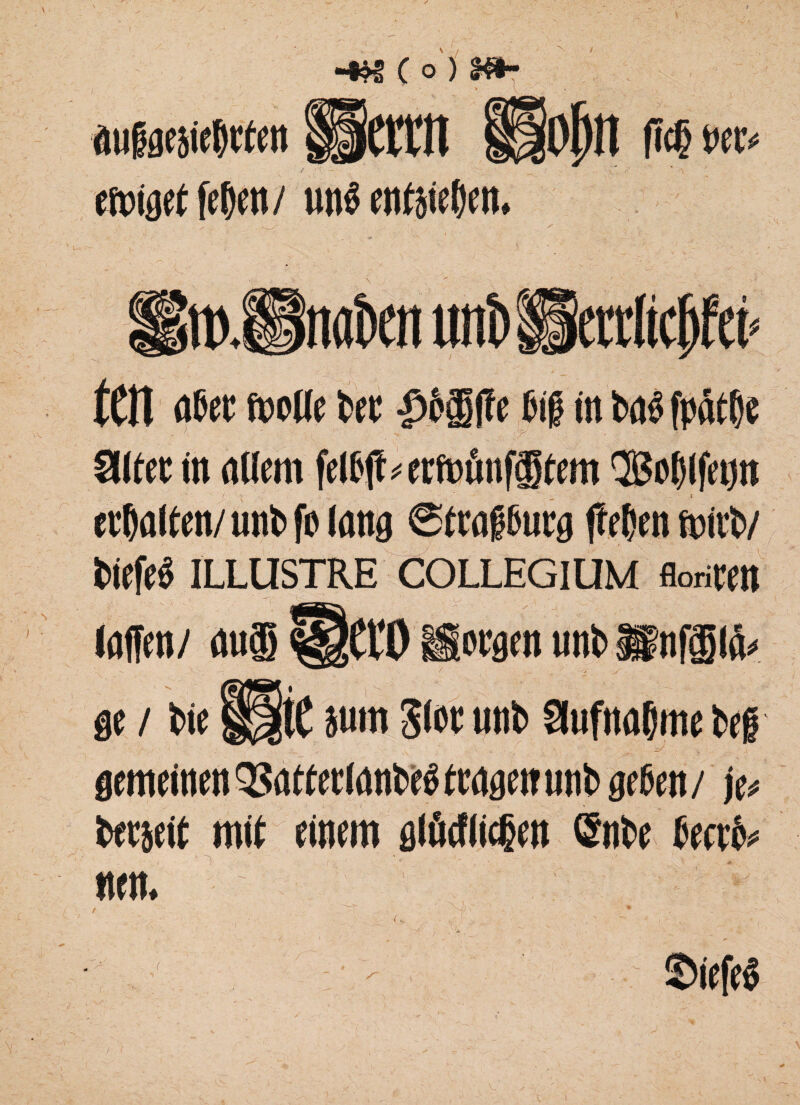 ( o )
außgeziehrten Herrn Sohn sich ver-
ewiget sehen / uns entziehen.
Ew. Gnaden und Herrlichkei-
ten aber wolle der Höchste biß in das späthe
Alter in allem selbst-erwünschtem Wohlseyn
erhalten / und so lang Straßburg stehen wird /
dieses ILLUSTRE COLLEGIUM floriren
lassen / auch Dero Sorgen und Anschlä-
ge / die Sie zum Flor und Aufnahme deß
gemeinen Vatterlandes tragen und geben / je-
derzeit mit einem glücklichen Ende beerö-
nen.
Dieses